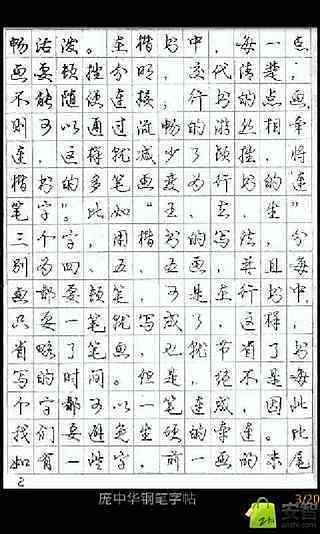 畅活泼。在楷书中，每一点
画要顿挫分明，交代清楚，
不能随便连接；行书的点画，
则可以通过流畅的游丝相牵
连，这样就减少了顿挫，将
楷书的多笔画变为行书的“连
笔字”。比如“王、去、生”
三个字，用楷书的写法，分
别为四、五、五画，并且每
画都要顿笔，可是在行书中，
只要一笔就写成了，这样，
省略了笔画，也就节省了书
写的时间。但是，绝不是每
个字都可以一笔连成，因此
我们要避免生硬的牵连。比
如有一些字，前一画的末尾
2
庞中华钢笔字帖
3/20
安智